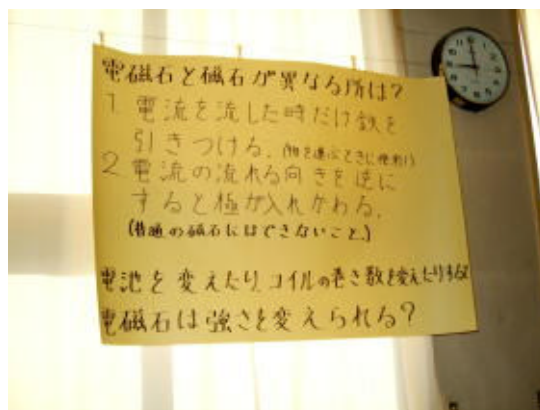 電磁石と磁石が異なる所は?
1. 電流を流した時だけ鉄を
引きつける。(物を運ぶときに便利!)
2. 電流の流れる向きを逆に
すると極が入れかわる。
(普通の磁石にはできないこと。)
電池を変えたり、コイルの巻き数を変えたりすると
電磁石は強さを変えられる?